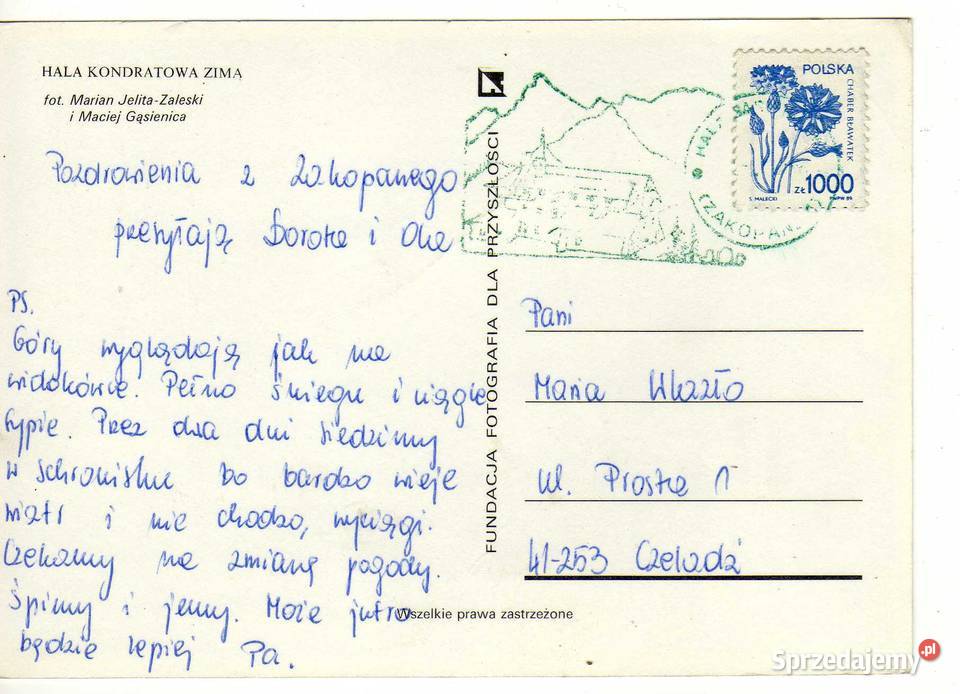 HALA KONDRATOWA ZIMĄ
fot. Marian Jelita-Zaleski
i Maciej Gąsienica
Pozdrowienia z Zakopanego
przesyłają Dorota i Ola
PS.
Góry wyglądają jak na
widokówce. Pełno śniegu i ciągle
sypie. Przez dwa dni siedzimy
w schronisku bo bardzo wieje
wiatr i nie chodzą wyciągi.
Czekamy na zmianę pogody.
Śpimy i jemy. Może jutro
będzie lepiej Pa.
FUNDACJA FOTOGRAFIA DLA PRZYSZŁOŚCI
POLSKA
CHABER BŁAWATEK
ZŁ 1000
S. MAŁECKI
PWPW 89
ZAKOPANE
Pani
Maria
ul. Prosta 1
41-253 Czeladź
Wszelkie prawa zastrzeżone
Sprzedajemy.pl